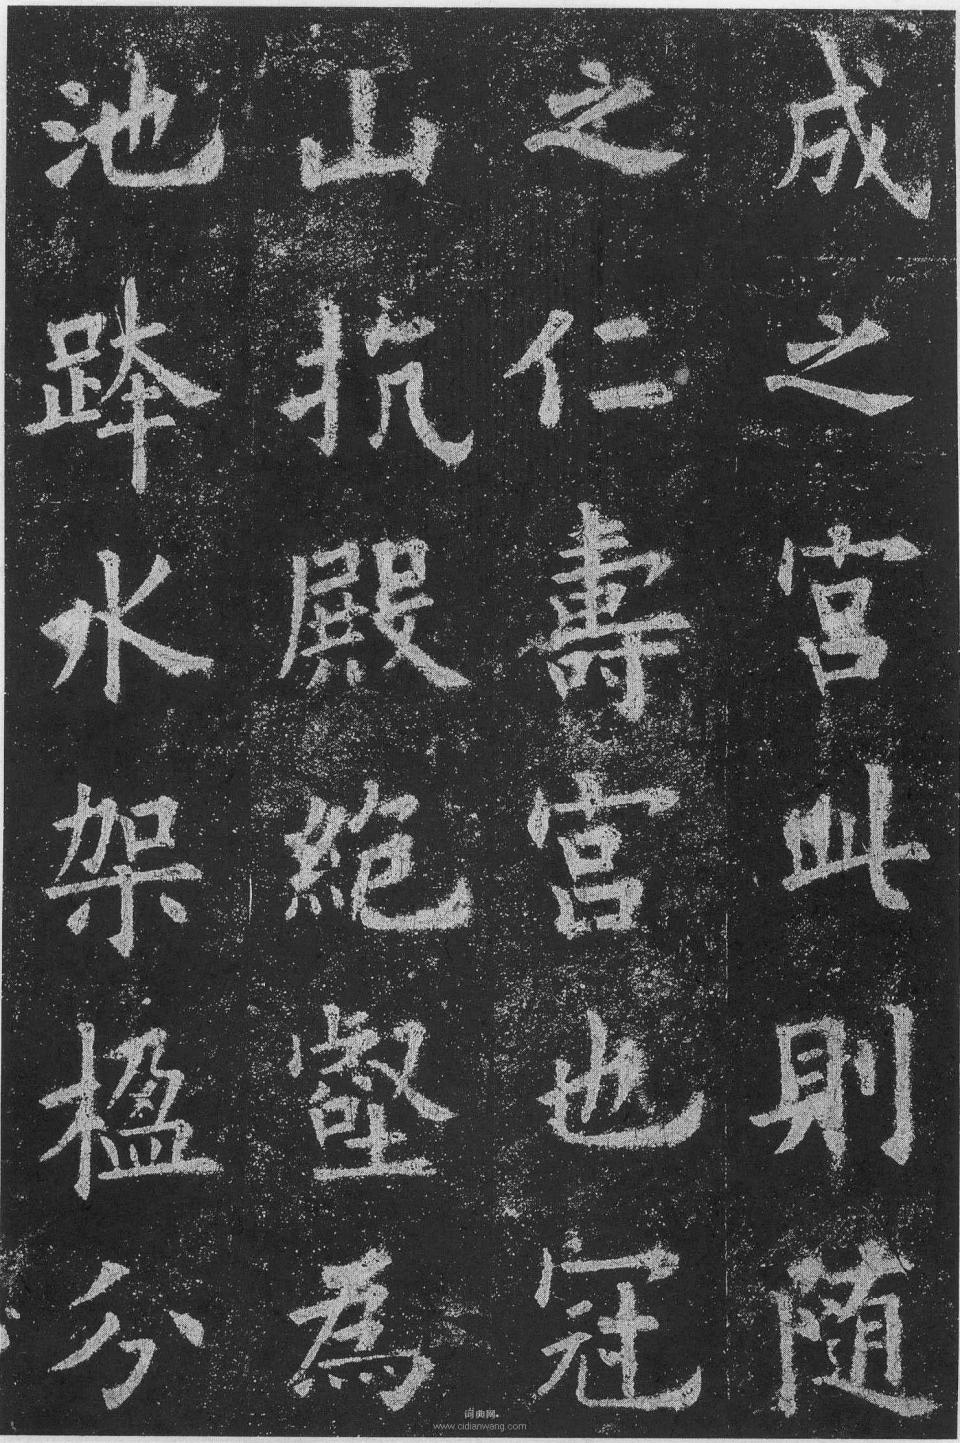 成之宮此則随
之仁壽宮也冠
山抗殿絕壑為
池跨水架楹分
词典网
www.cidianwang.com